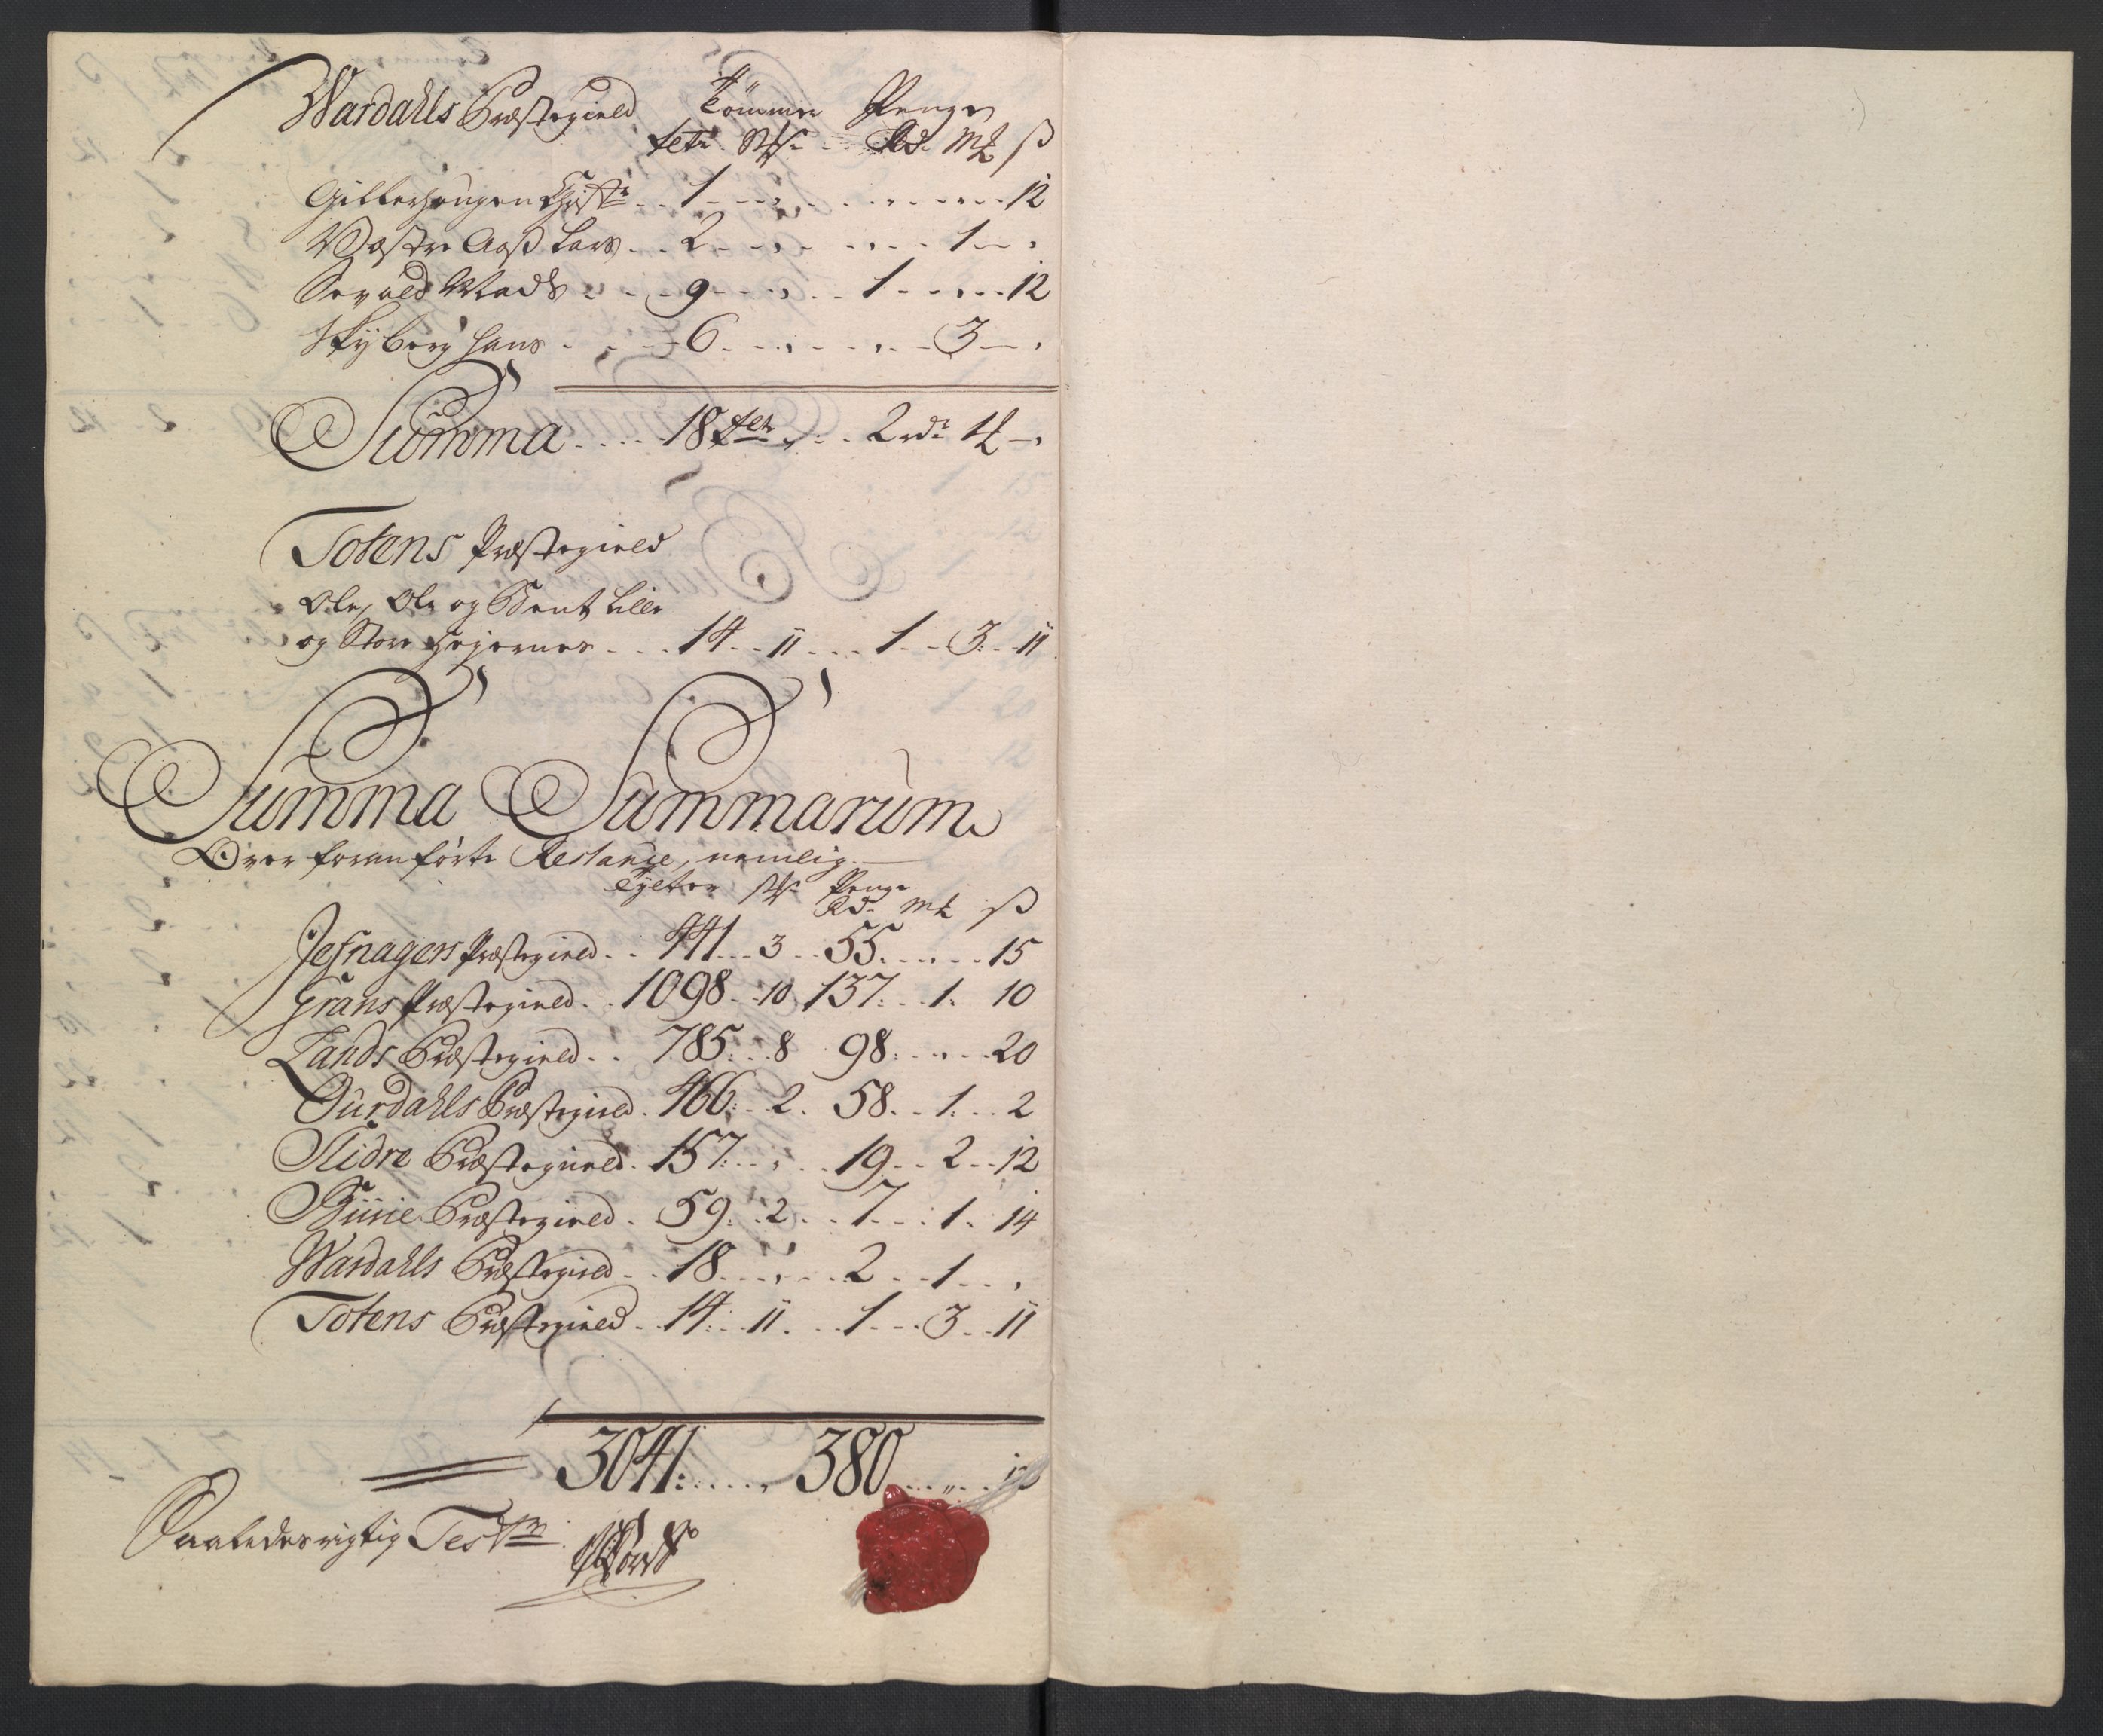 Wardahls Præstegield Tömmer Penge
tetr St: Rd: Mk ß
Gilterhougen .. 1 - - - 12
Wæstre Aaß Lars .. 2 - - 1 -
Sevald Mads .. 9 - - 1 - - 12
Skyberg Hans - - 6 - - - 3 -
Summa .... 18 tltr .. 2 rd: 1 -
Totens Præstegield
Ole, Ole og Bent Lille
og Store Hejernes ... 14 .. 11 ... 1 .. 3 .. 11
Summa Summarum
Over foranførte Restance, nemlig.
Tylter St: Penge
Rd: Mk ß
Jefnagers Præstegield .. 441 .. 3 .. 55 .... 15
Grans Præstegield .. 1098 .. 10 137 .. 1. 10
Lands Præstegield .. 785 .. 8 98 .... 20
Ourdahls Præstegield . 466 .. 2. 58 .. 1 .. 2
Slidre Præstegield . 157 .... 19 .. 2 .. 12
Præstegield . 59 .. 2 .. 7 .. 1. 14
Wardahls Præstegield .. 18 .... 2 .. 1 ..
Totens Præstegield .. 14 .. 11 .. 1 .. 3 .. 11
3041: .... 380 ....
Saaledes rigtig Test: